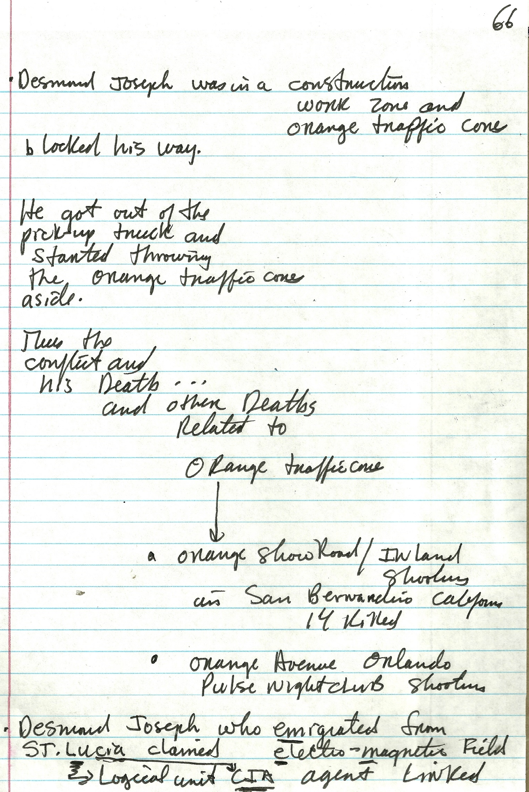 66
• Desmond Joseph was in a construction
work zone and
orange traffic cone
blocked his way.
He got out of the
pick-up truck and
started throwing
the orange traffic cone
aside.
Thus the
conflict and
his Death ...
and other Deaths
Related to
ORange traffic cone
• orange show Road / INland
shooting
in San Bernardino California
14 Killed
• orange Avenue Orlando
Pulse Nightclub shooting
• Desmond Joseph who emigrated from
ST. Lucia claimed electro-magnetic Field
Logical unit CIA agent linked